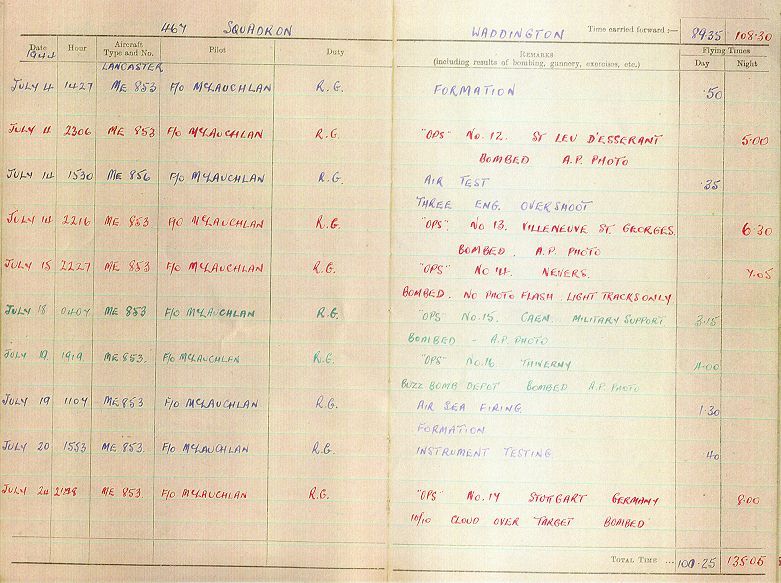 467 SQUADRON WADDINGTON Time carried forward :— 89.35 108.30
Date Hour Aircraft Type and No. Pilot Duty REMARKS (including results of bombing, gunnery, exercises, etc.) Flying Times Day Night
1944 LANCASTER
JULY 4 1427 ME 853 F/O MCLAUCHLAN R.G. FORMATION .50
JULY 4 2306 ME 853 F/O MCLAUCHLAN R.G. "OPS" No. 12. ST LEU D'ESSERANT 5.00
BOMBED A.P. PHOTO
JULY 14 1530 ME 856 F/O MCLAUCHLAN R.G. AIR TEST .35
THREE ENG. OVERSHOOT
JULY 14 2216 ME 853 F/O MCLAUCHLAN R.G. "OPS" No 13. VILLENEUVE ST. GEORGES. 6.30
BOMBED. A.P. PHOTO
JULY 15 2227 ME 853 F/O MCLAUCHLAN R.G. "OPS" No 14. NEVERS. 7.05
BOMBED. NO PHOTO FLASH. LIGHT TRACKS ONLY
JULY 18 0407 ME 853 F/O MCLAUCHLAN R.G. "OPS" No.15. CAEN. MILITARY SUPPORT 3.15
BOMBED - A.P. PHOTO
JULY 19 1919 ME 853. F/O MCLAUCHLAN R.G. "OPS" No.16. THIVERNY 4.00
BUZZ BOMB DEPOT BOMBED A.P. PHOTO
JULY 19 1107 ME 853 F/O MCLAUCHLAN R.G. AIR SEA FIRING 1.30
FORMATION
JULY 20 1553 ME 853. F/O MCLAUCHLAN R.G. INSTRUMENT TESTING .40
JULY 24 ME 853. F/O MCLAUCHLAN R.G. "OPS" No.17 STUTTGART GERMANY 8.00
10/10 CLOUD OVER TARGET BOMBED
TOTAL TIME ... 100.25 135.05